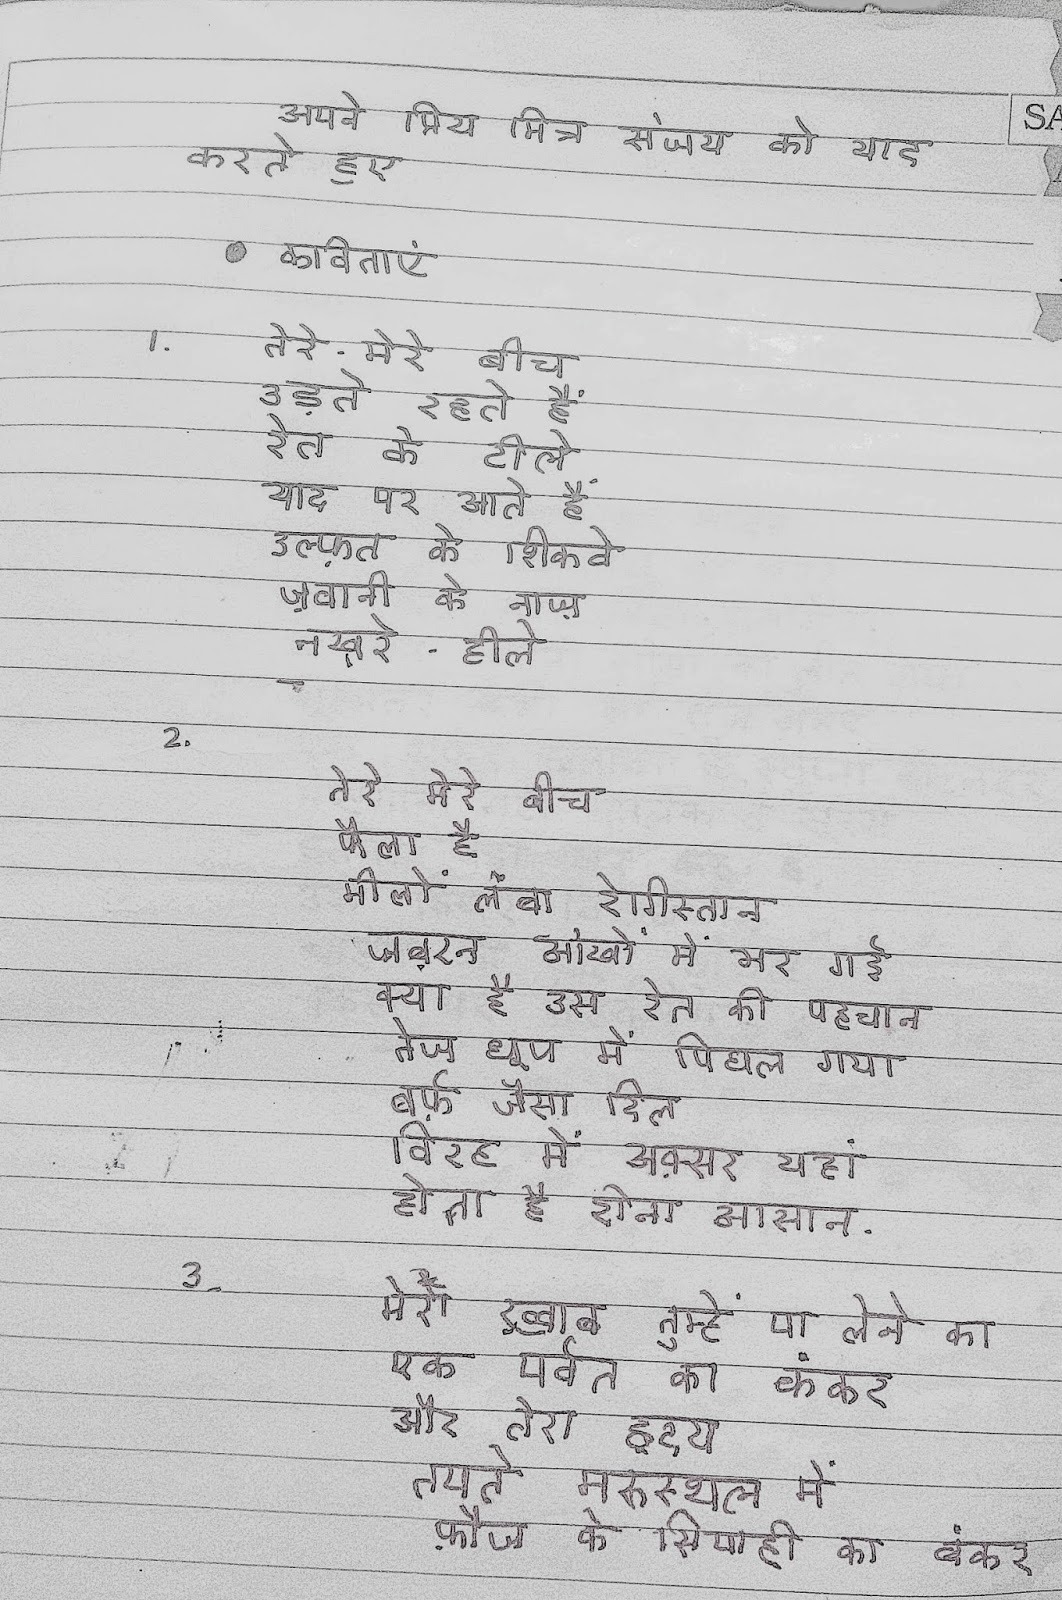 SA
अपने प्रिय मित्र संजय को याद
करते हुए
• कविताएं
1. तेरे-मेरे बीच
उड़ते रहते हैं
रेत के टीले
याद पर आते हैं
उल्फ़त के शिकवे
ज़वानी के नाज़
नख़रे - हीले
2.
तेरे मेरे बीच
फैला है
मीलों लंबा रेगीस्तान
जबरन आंखों में भर गई
क्या है उस रेत की पहचान
तेज धूप में पिघल गया
बर्फ़ जैसा दिल
विरह में अक़्सर यहां
होता है रोना आसान.
3. मेरा ख़्वाब तुम्हें पा लेने का
एक पर्वत का कंकर
और तेरा हृदय
तपते मरूस्थल में
फ़ौज के सिपाही का बंकर